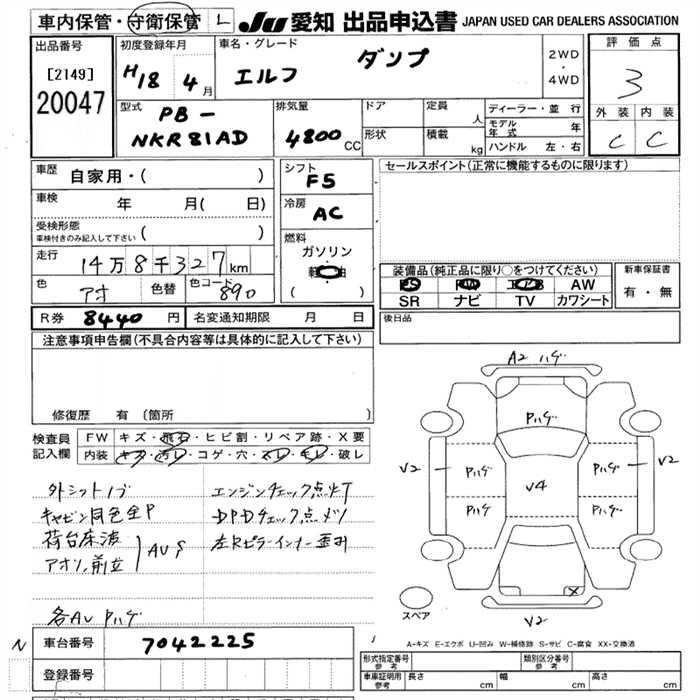 車内保管・守衛保管 L JU 愛知 出品申込書 JAPAN USED CAR DEALERS ASSOCIATION
出品番号 初度登録年月 車名・グレード 評価点
[2149] H18年4月 エルフ ダンプ 2WD・4WD 3
20047
型式 排気量 ドア 定員 人 ディーラー・並行 外装 内装
PB- モデル年式 年 C C
NKR81AD 4800CC 形状 積載 kg ハンドル 左・右
車歴 自家用・( ) シフト F5 セールスポイント(正常に機能するものに限ります)
車検 年 月( 日) 冷房 AC
受検形態 ( )
車検付きのみ記入して下さい
燃料
走行 14万8千327km ガソリン
軽油
装備品(純正品に限り○をつけてください) 新車保証書
色 アオ 色替 色コード 890 ( ) PS PW エアB AW 有・無
SR ナビ TV カワシート
R券 8440円 名変通知期限 月 日 後日品
注意事項申告欄(不具合内容等は具体的に記入して下さい)
A2 ハゲ
Pハゲ
修復歴 有 (箇所 )
検査員記入欄 FW キズ・飛石・ヒビ割・リペア跡・X要
内装 キズ・汚レ・コゲ・穴・スレ・キレ・破レ
V2 Pハゲ Pハゲ V2
V4
外シットノブ エンジンチェック点灯
キャビン同色全P DPDチェック点メツ
Pハゲ Pハゲ
荷台床波 AUS 左Rピラーインナー歪み
アオリ、前立
X
スペア
V2
各AU Pハゲ
A-キズ E-エクボ U-凹み W-補修跡 S-サビ C-腐食 XX-交換済
N 車台番号 7042225
登録番号
形式指定番号 参考 類別区分番号 参考
車庫証明用 参考 長さ cm 幅 cm 高さ cm